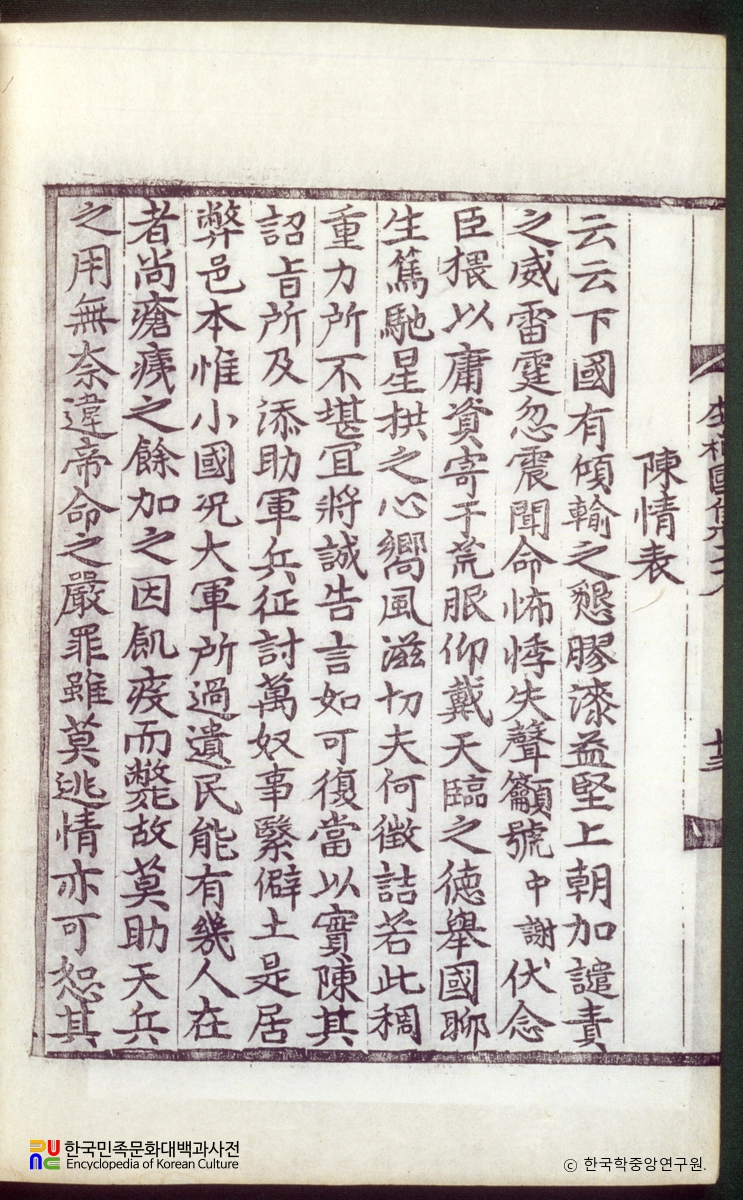 李相國集卷二十八
十三
陳情表
云云下國有傾輸之懇膠漆益堅上朝加譴責
之威雷霆忽震聞命怖悸失聲籲號中謝伏念
臣猥以庸資寄于荒服仰戴天臨之德擧國聊
生篤馳星拱之心嚮風滋切夫何徵詰若此稠
重力所不堪宜將誠告言如可復當以實陳其
詔旨所及添助軍兵征討萬奴事緊僻土是居
弊邑本惟小國况大軍所過遺民能有幾人在
者尚瘡痍之餘加之因飢疫而斃故莫助天兵
之用無奈違帝命之嚴罪雖莫逃情亦可恕其
한국민족문화대백과사전
Encyclopedia of Korean Culture
© 한국학중앙연구원.